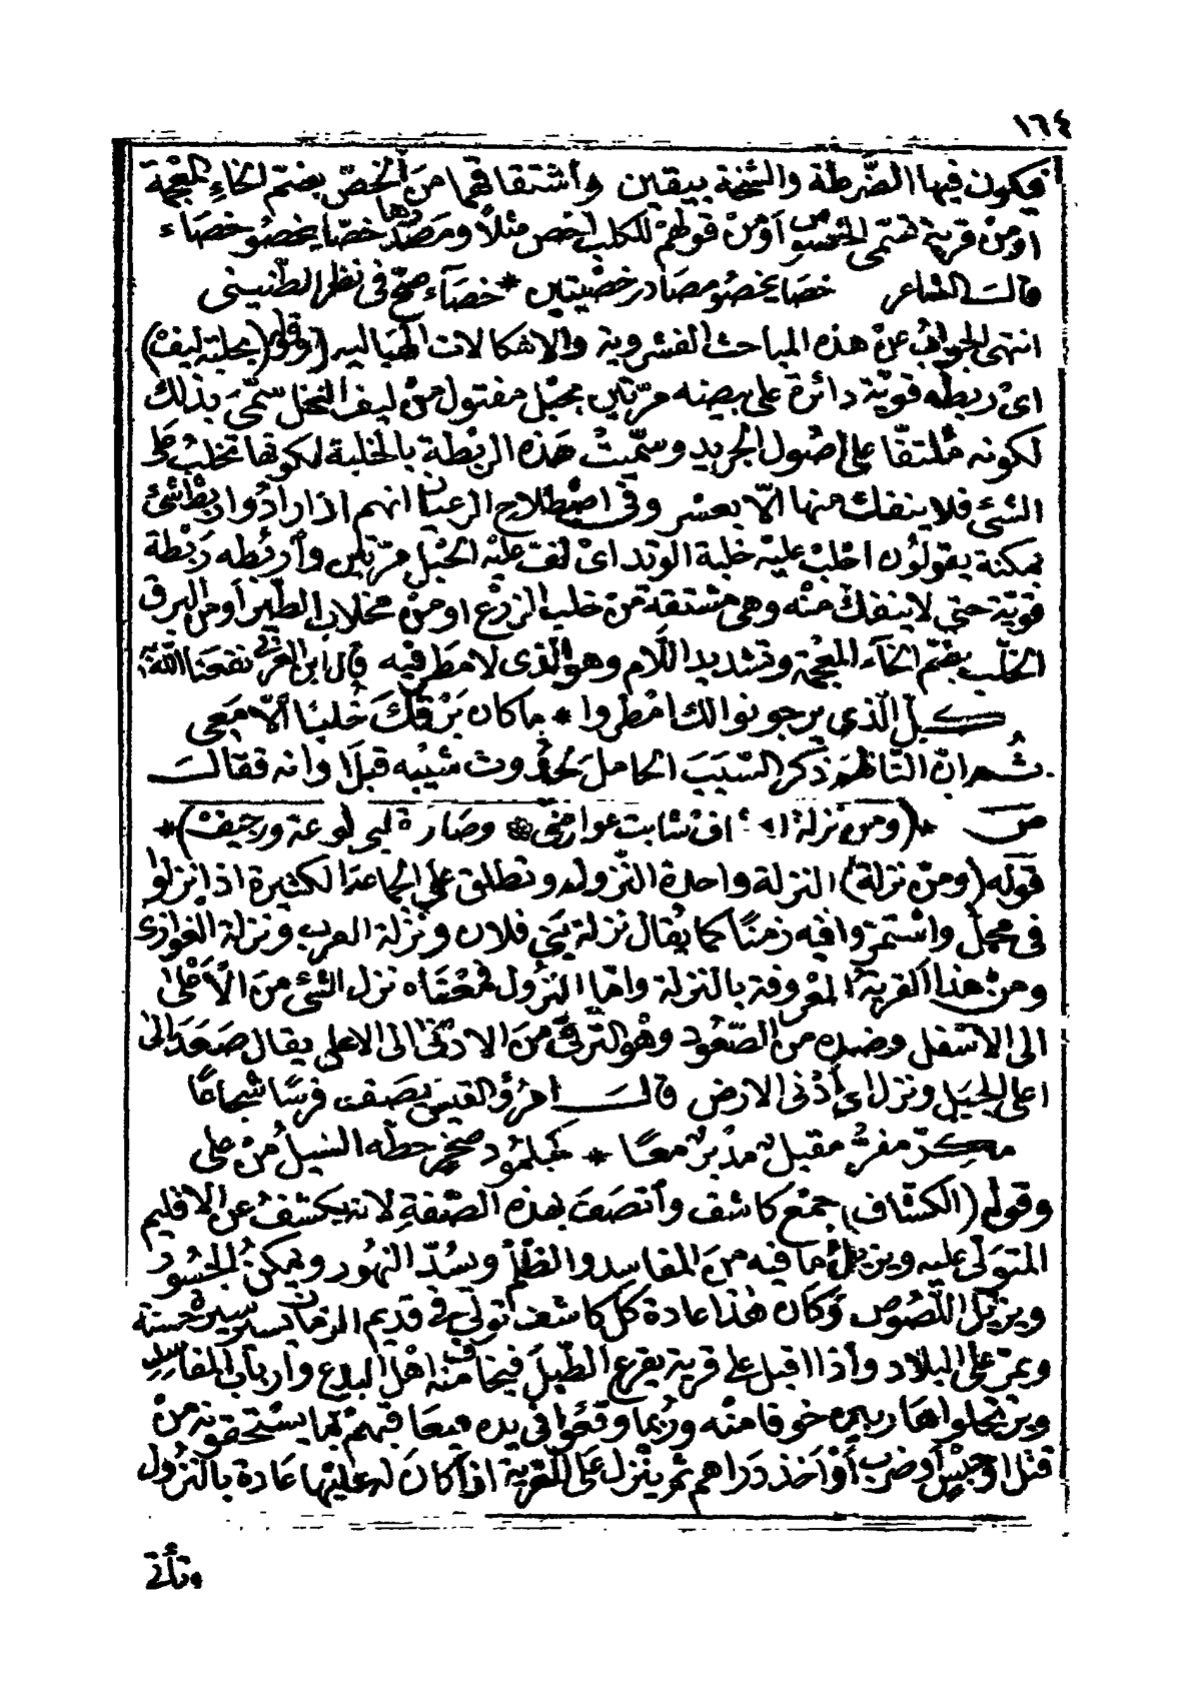 ١٦٤
فيكون فيها الضرطة والشخة بيقين واشتقاقهما من الخصّ بضمّ الخاء المعجمة
او من قرية تسمى الخصوص أو من قولهم للكلب اخص مثلاً ومصدرها خصّا يخصو خصاء
قال الشاعر خصا يخصو مصادر خصيتين * خصآء صحّ في نظر الطنيني
انتهى الجواب عن هذه المباحث الفشروية والاشكالات الهباليه (وقوله (بخلبة ليف)
اي ربطه قويّة دائرة على بيضه مرّتين بحبل مفتول من ليف النخل سمّي بذلك
لكونه ملتفّا على اصول الجريد وسمّيت هذه الربطة بالخلبة لكونها تخلب على
الشئ فلا ينفك منها الاّ بعسر وفي اصطلاح الرعيان انهم اذا ارادوا ربط شئ
بمكنة يقولون اخلب عليه خلبة الوتد اي لف عليه الحبل مرّتين وأربطه ربطة
قويّة حتى لا ينفك منه وهي مشتقة من خلب الزرع او من مخلاب الطير أو من البرق
الخلّب بضمّ الخآء المعجمة وتشديد اللّام وهو الّذي لا مطر فيه قال ابن العربي نفعنا الله به
كل الّذي يرجو نوالك امطروا * ما كان برقك خلبًا ألّا معي
ثم ان النّاظم ذكر السّبب الحامل لحدوث شيبه قبل اوانه فقال
ص *(ومن نزلة الكشاف شابت عوارضي * وصار لقلبي لوعة ورجيف)*
قوله (ومن نزلة) النزلة واحدة النّزول وتطلق على الجماعة الكثيرة اذا نزلوا
في محل واستمرّوا فيه زمنًا كما يقال نزلة بني فلان ونزلة العرب ونزلة الغوازي
ومن هذا القرية المعروفة بالنزلة وامّا النزول فمعناه نزل الشئ من الأعلى
الى الاسفل وضده من الصّعود وهو الترقّي من الادنى الى الاعلى يقال صعد الى
اعلى الجبل ونزل اي أدنى الارض قال امرؤ القيس يصف فرسًا شجاعًا
مكرّ مفرّ مقبل مدبر معًا * كجلمود صخر حطّه السيل من على
وقوله (الكشّاف) جمع كاشف وأتصف بهذه الصّفة لانه يكشف عن الاقليم
المتولّي عليه ويزيل ما فيه من المفاسد والظلم ويسدّ النهور ويمكن الجسور
ويزيل اللّصوص وكان هذا عادة كل كاشف تولّي في قديم الزمان يسير سيرة حسنة
ويمرّ على البلاد وأذا اقبل على قرية يقرع الطّبل فيخاف منه اهل البدع وأرباب المفاسد
وينجلوا هاربين خوفا منه وربما وقعوا في يده فيعاقبهم بما يستحقونه من
قتل او حبس أو ضرب أو أخذ دراهم ثم ينزل على القرية اذا كان له عليها عادة بالنّزول
وتأتي